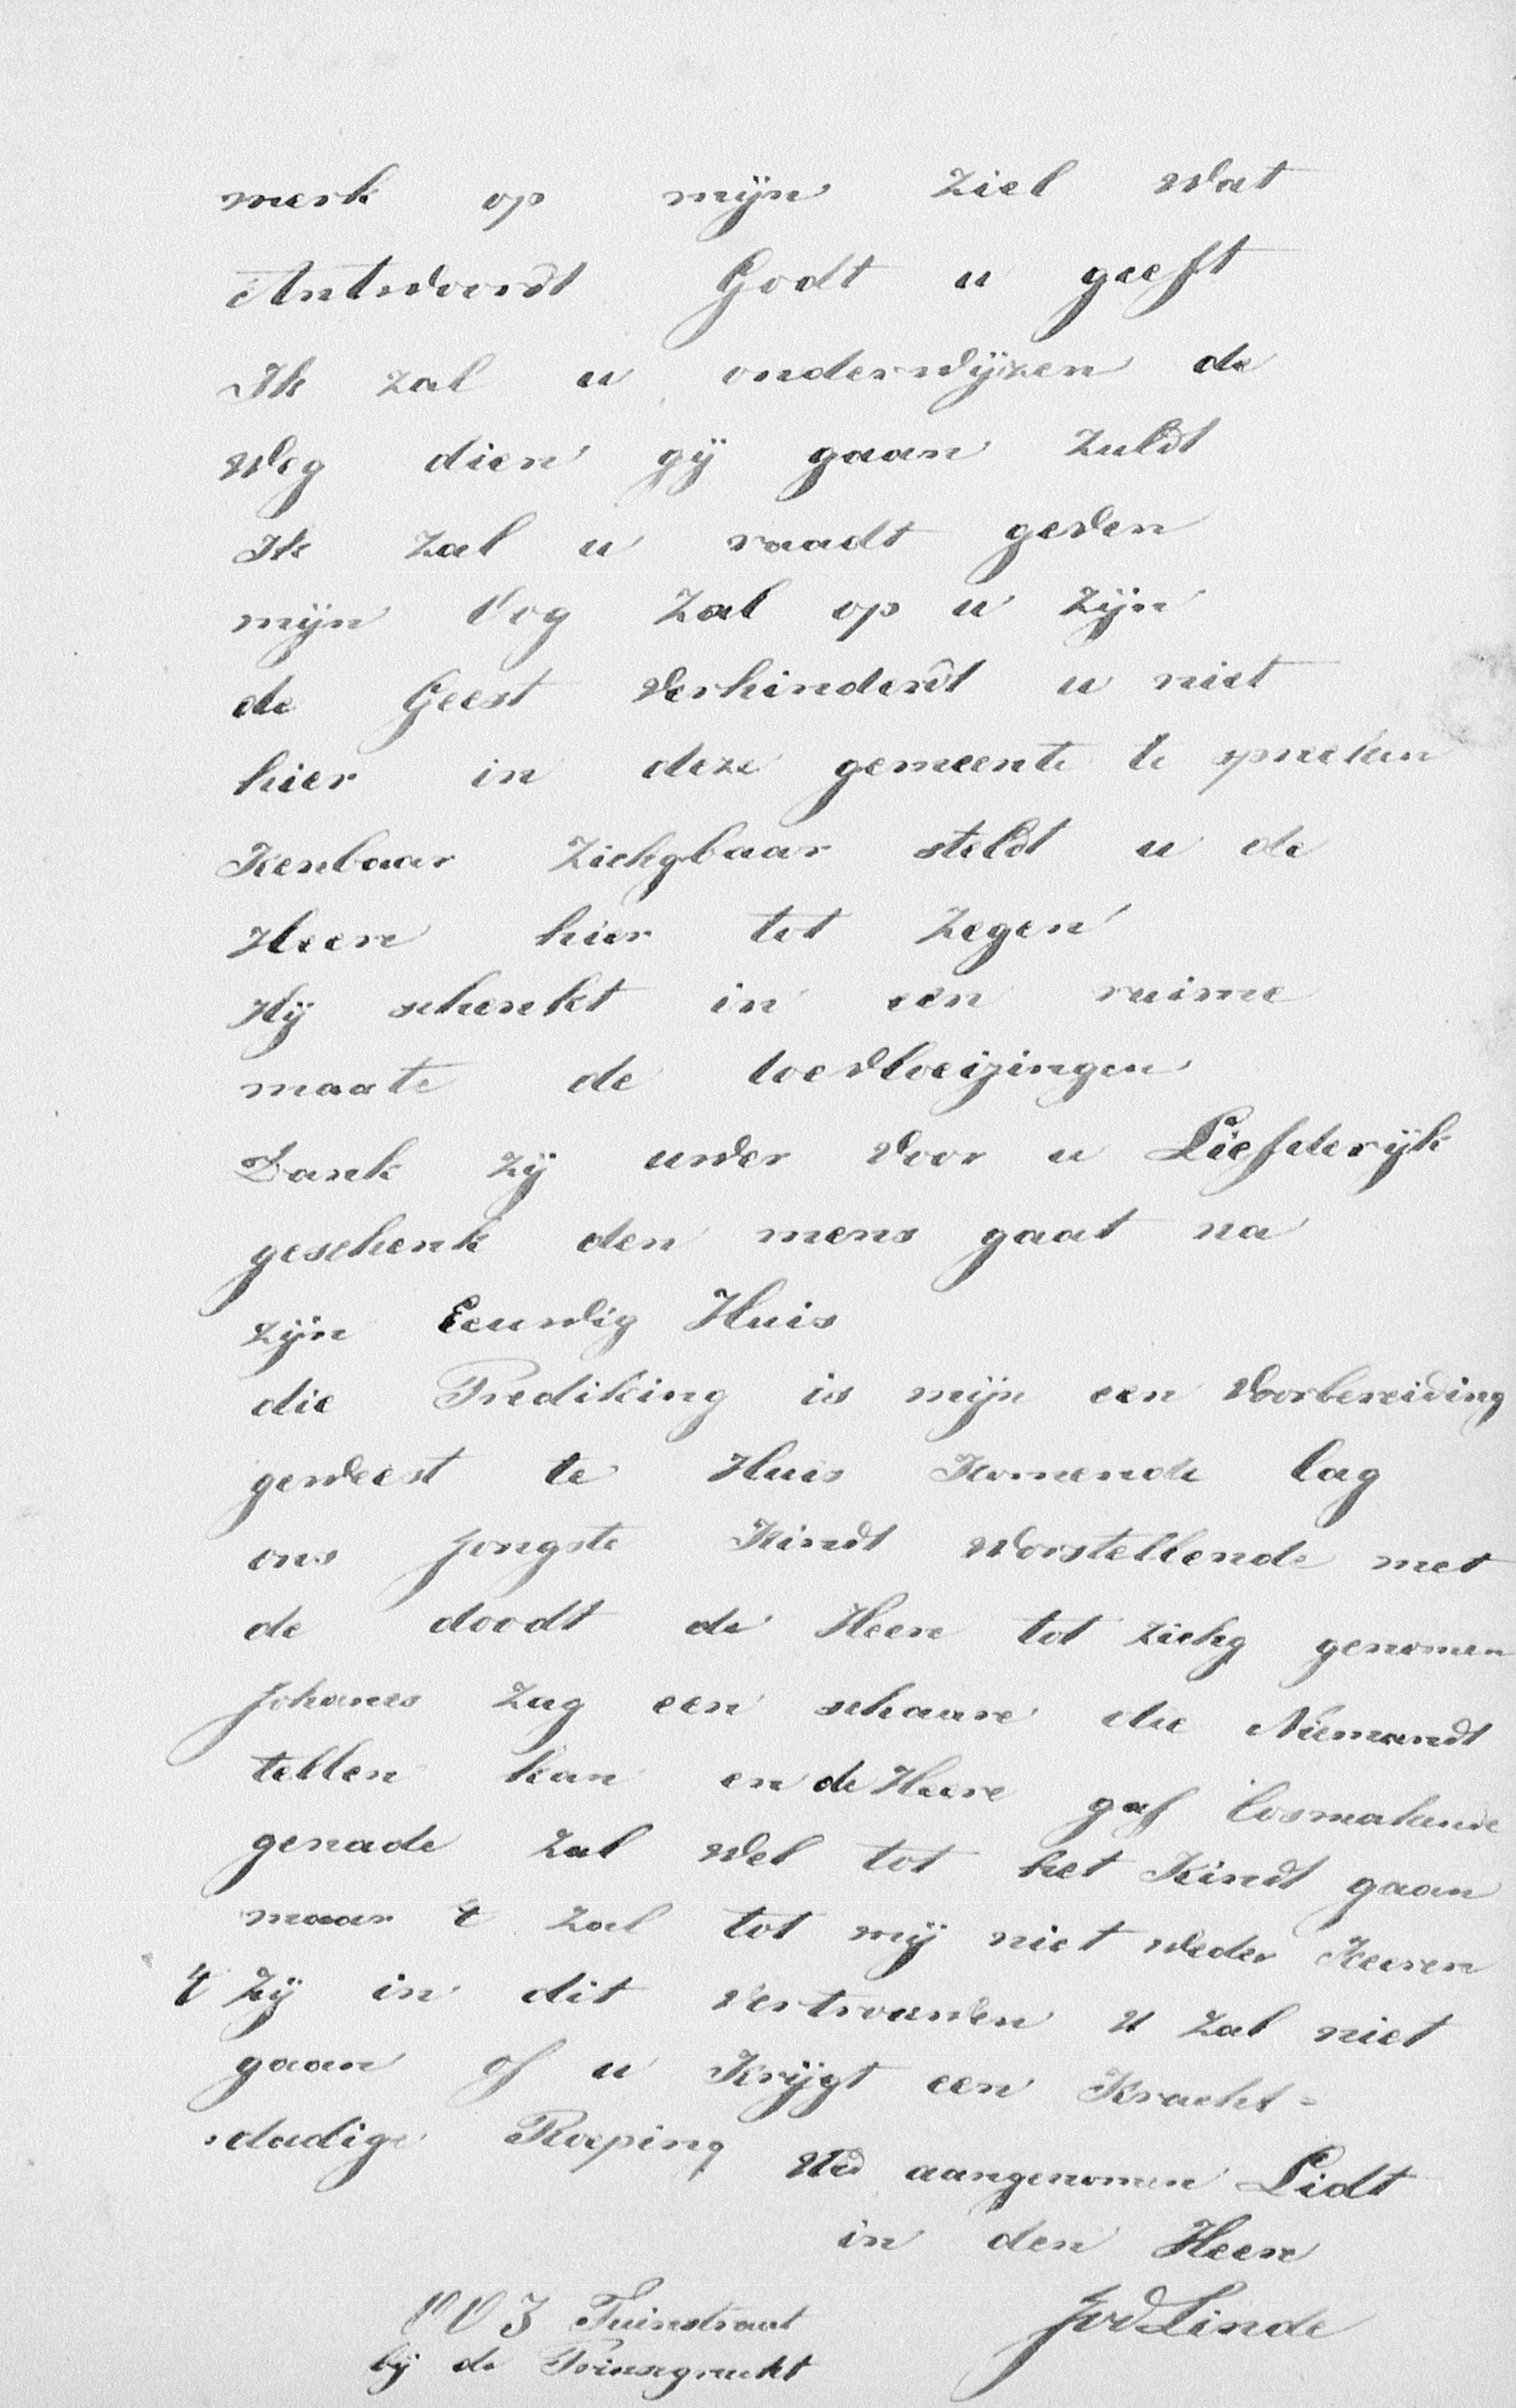 merk op mijn ziel wat
Antwoordt Godt u geeft
Ik zal u onderwijzen de
weg dien gij gaan zuldt
Ik zal u raadt geven
mijn Oog zal op u zijn
de Geest verhinderdt u niet
hier in deze gemeente te spreeken
Kenbaar Zichgbaar steldt u de
Heere hier tot zegen
Hij schenkt in een ruime
maate de toevloeijingen
Dank zij uwer voor u Liefderijk
geschenk den mens gaat na
zijn Eeuwig Huis
die Prediking is mijn een voorbereiding
geweest te Huis Komende lag
ons jongste Kindt worstellende met
de doodt de Heere tot zichg genomen
Johanes zag een schaare die Niemandt
tellen kan en de Heere gaf losmakende
genade zal wel tot het Kindt gaan
maar 't zal tot mij niet weder Keeren
't Zij in dit vertrouwen U zal niet
gaan of u Krijgt een Kracht=
=dadige Roeping
Uw aangenomen Lidt
in den Heere
JvdLinde
Tuinstraat
bij de Prinsegracht